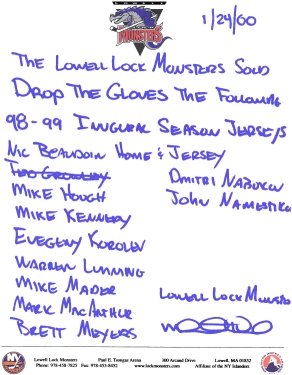 LOWELL
MONSTERS
1/24/00
THE LOWELL LOCK MONSTERS SOLD
DROP THE GLOVES THE FOLLOWING
98-99 INUGURAL SEASON JERSEYS
NIC BEAUDOIN HOME & JERSEY
MIKE HOUGH
MIKE KENNEDY
EVEGENY KOROLEV
WARREN LUNING
MIKE MADER
MARK MACARTHUR
BRETT MEYERS
DMITRI NABOKOV
JOHN NAMESTNIKOV
LOWELL LOCK MONSTERS
Lowell Lock Monsters Paul E. Tsongas Arena 300 Arcand Drive Lowell, MA 01852
Phone: 978-458-7825 Fax: 978-453-8452 www.lockmonsters.com Affiliate of the NY Islanders